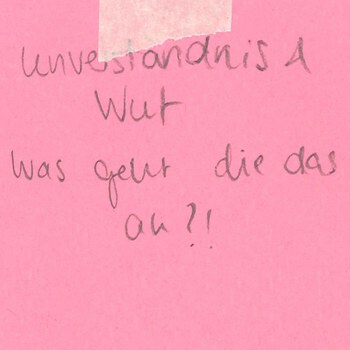 Unverständnis &
Wut
Was geht die das
an?!